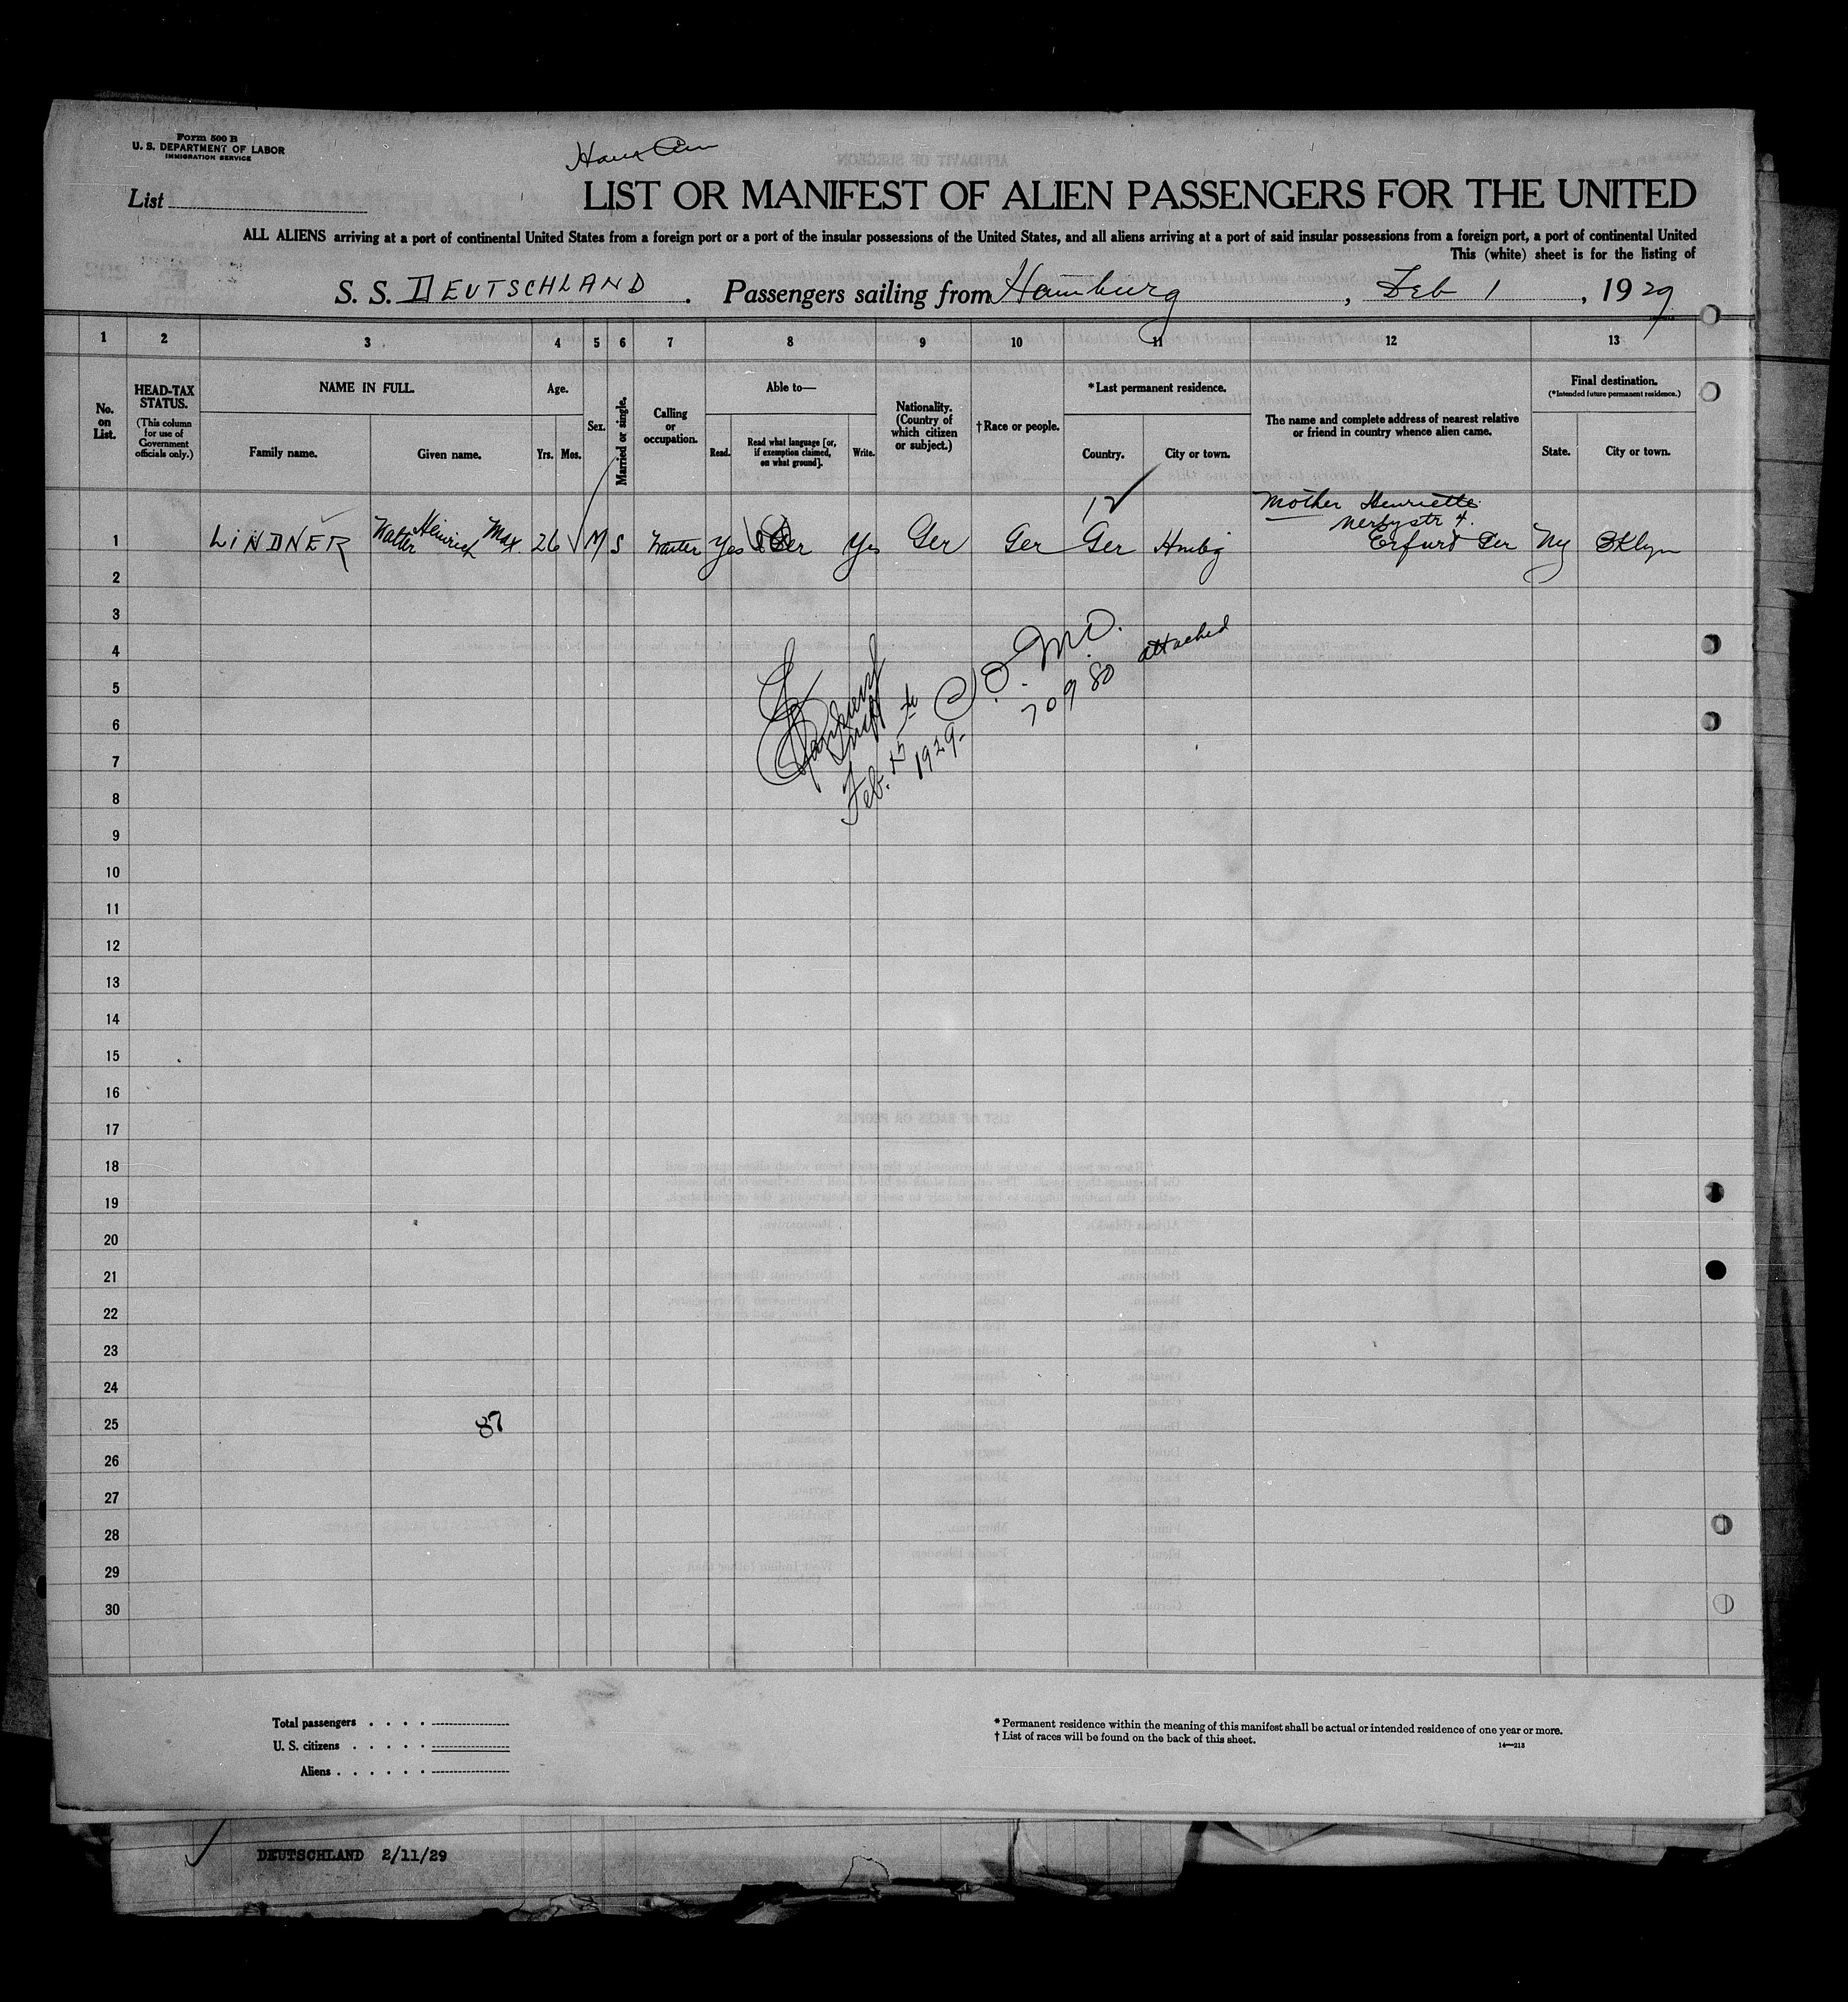 Form 500 B
U. S. DEPARTMENT OF LABOR
IMMIGRATION SERVICE
List
LIST OR MANIFEST OF ALIEN PASSENGERS FOR THE UNITED
ALL ALIENS arriving at a port of continental United States from a foreign port or a port of the insular possessions of the United States, and all aliens arriving at a port of said insular possessions from a foreign port, a port of continental United
This (white) sheet is for the listing of
S. S. DEUTSCHLAND . Passengers sailing from Hamburg , Feb 1 , 1929
1 2 3 4 5 6 7 8 9 10 11 12 13
No. on List.
HEAD-TAX STATUS.
(This column for use of Government officials only.)
NAME IN FULL.
Family name.
Given name.
Age.
Yrs. Mos.
Sex.
Married or single.
Calling or occupation.
Able to—
Read.
Read what language [or, if exemption claimed, on what ground].
Write.
Nationality. (Country of which citizen or subject.)
†Race or people.
*Last permanent residence.
Country.
City or town.
The name and complete address of nearest relative or friend in country whence alien came.
Final destination.
(*Intended future permanent residence.)
State.
City or town.
12
Mother Henriette
1 LINDNER Walter Heinrich Max 26 M S Waiter Yes Ger Yes Ger Ger Ger Hmbg Erfurt Ger Ny BKlyn
2
3
4
5
6
7
8
9
10
11
12
13
14
15
16
17
18
19
20
21
22
23
24
25
26
27
28
29
30
Feb. 15 1929
70980 attached
87
Total passengers
U. S. citizens
Aliens
* Permanent residence within the meaning of this manifest shall be actual or intended residence of one year or more.
† List of races will be found on the back of this sheet.
14—213
DEUTSCHLAND 2/11/29